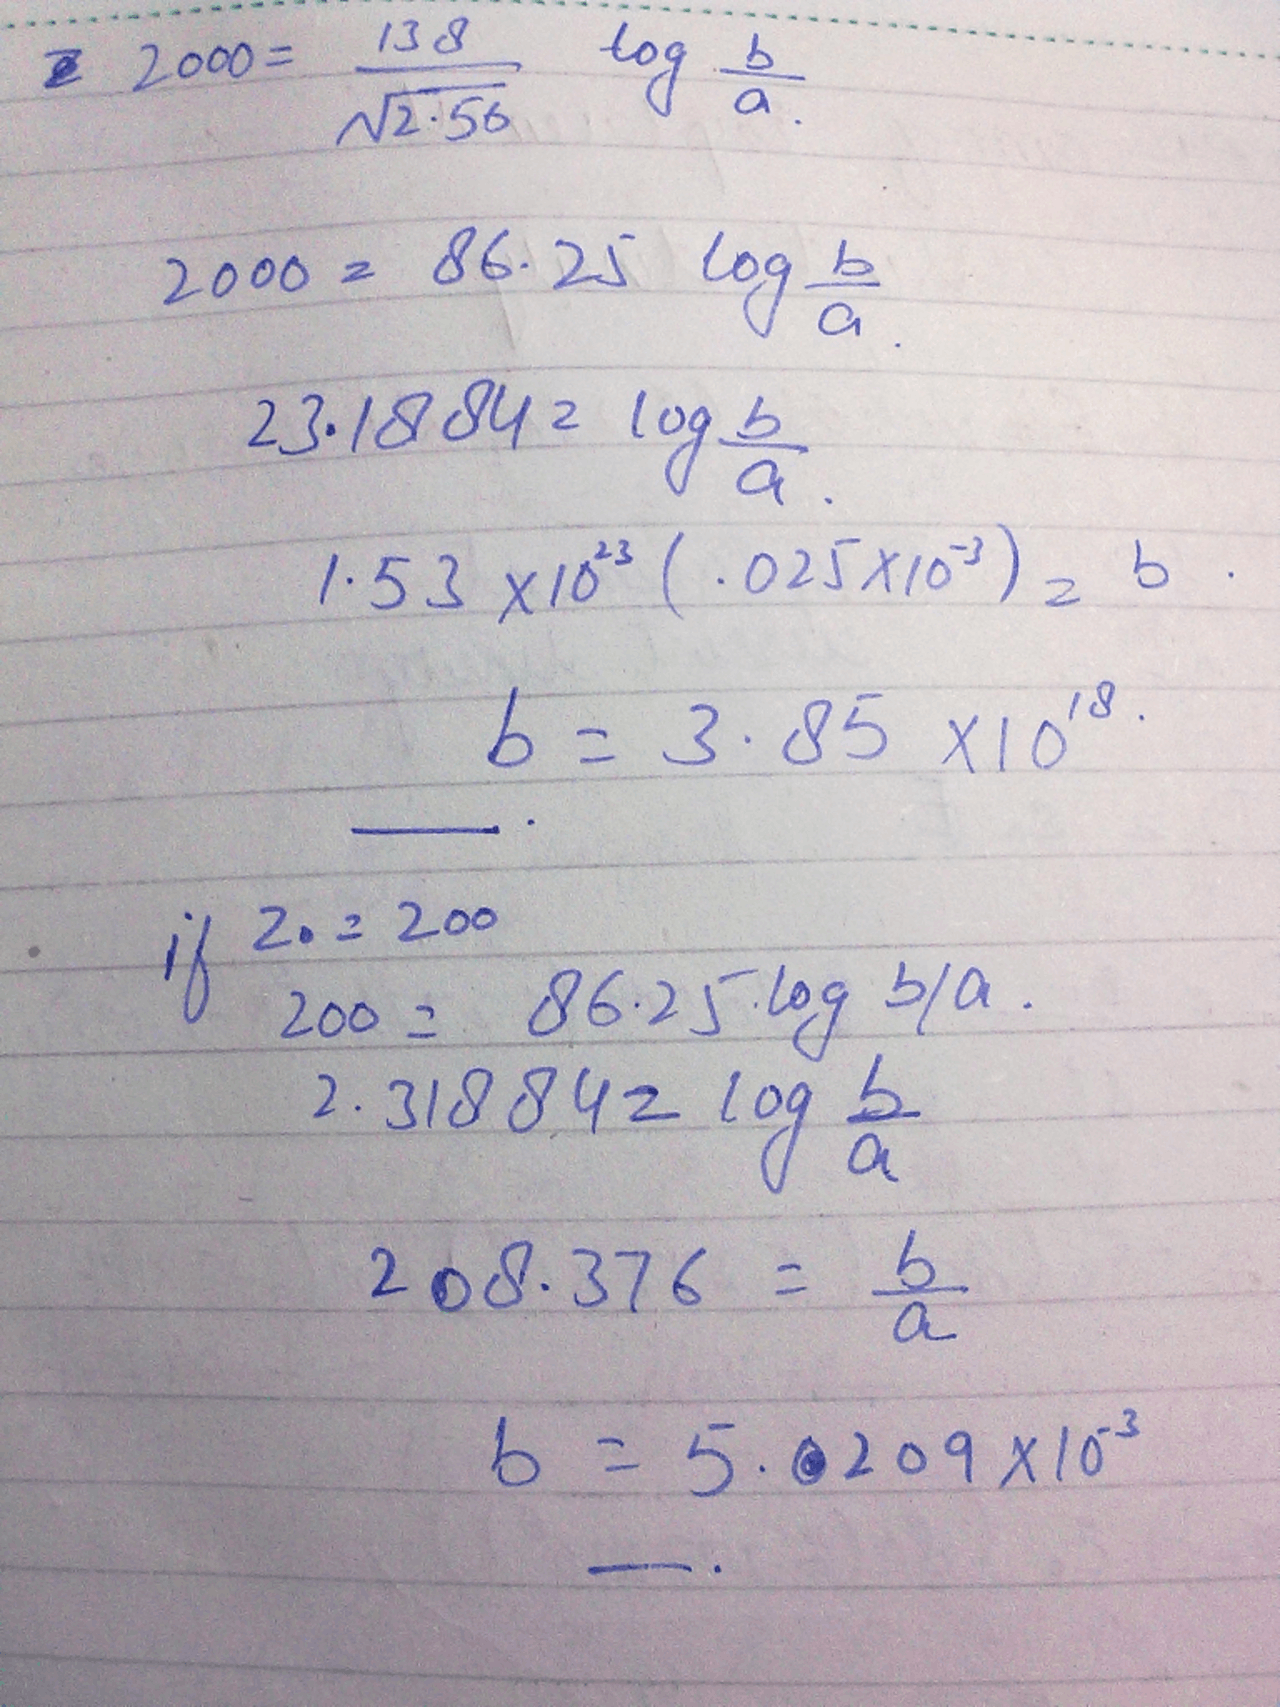 2000 = 138/√2.56 log b/a.
2000 = 86.25 log b/a.
23.18842 = log b/a.
1.53 × 10²³ (.025 × 10⁻³) = b.
b = 3.85 × 10¹⁸.
if Z₀ = 200
200 = 86.25 log b/a.
2.31884 = log b/a
208.376 = b/a
b = 5.0209 × 10⁻³